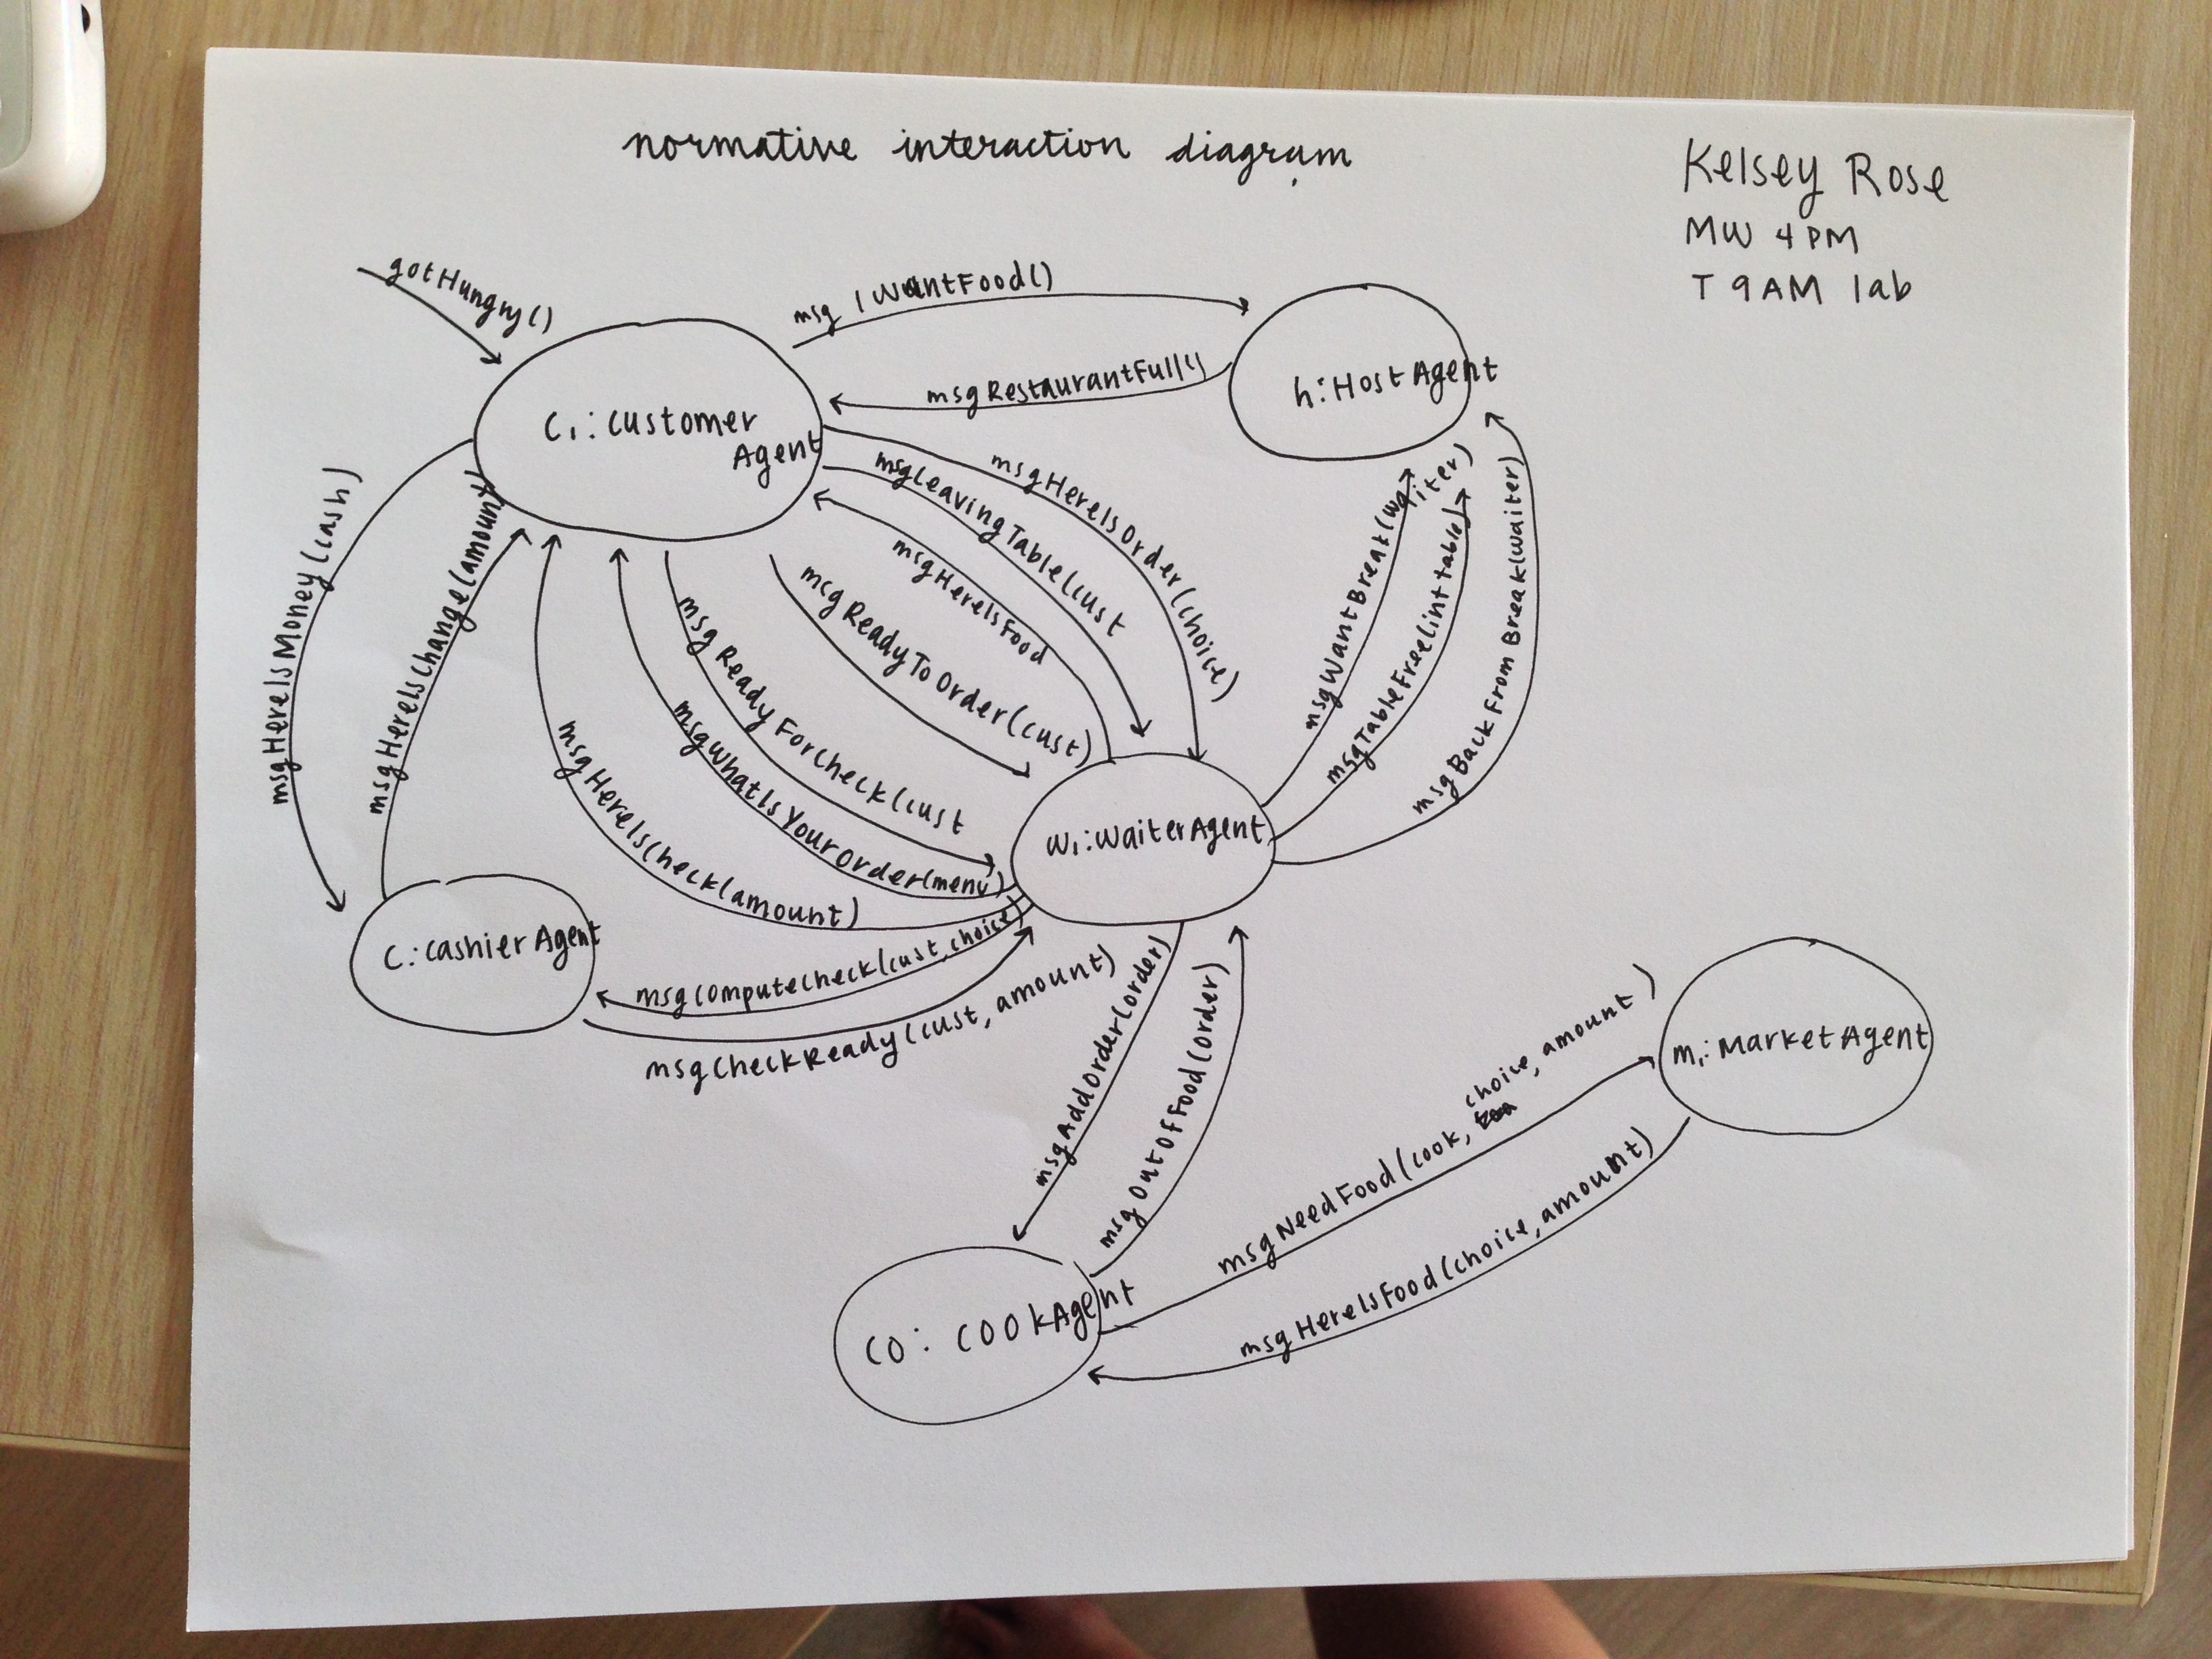 normative interaction diagram
Kelsey Rose
MW 4PM
T 9AM lab
gotHungry()
msg IWantFood()
msgRestaurantFull()
C1: Customer
Agent
h: HostAgent
msgHereIsOrder(choice)
msgLeavingTable(cust
msgHereIsFood
msgReadyToOrder(cust)
msgReadyForCheck(cust
msgWhatIsYourOrder(menu)
msgHereIsCheck(amount)
msgHereIsMoney(cash)
msgHereIsChange(amount)
msgWantBreak(waiter)
msgTableFree(int table)
msgBackFromBreak(waiter)
W1: WaiterAgent
C: CashierAgent
msgComputeCheck(cust, choice)
msgCheckReady(cust, amount)
msgAddOrder(order)
msgOutOfFood(order)
m1: MarketAgent
msgNeedFood(cook, choice, amount)
msgHereIsFood(choice, amount)
CO: COOKAgent